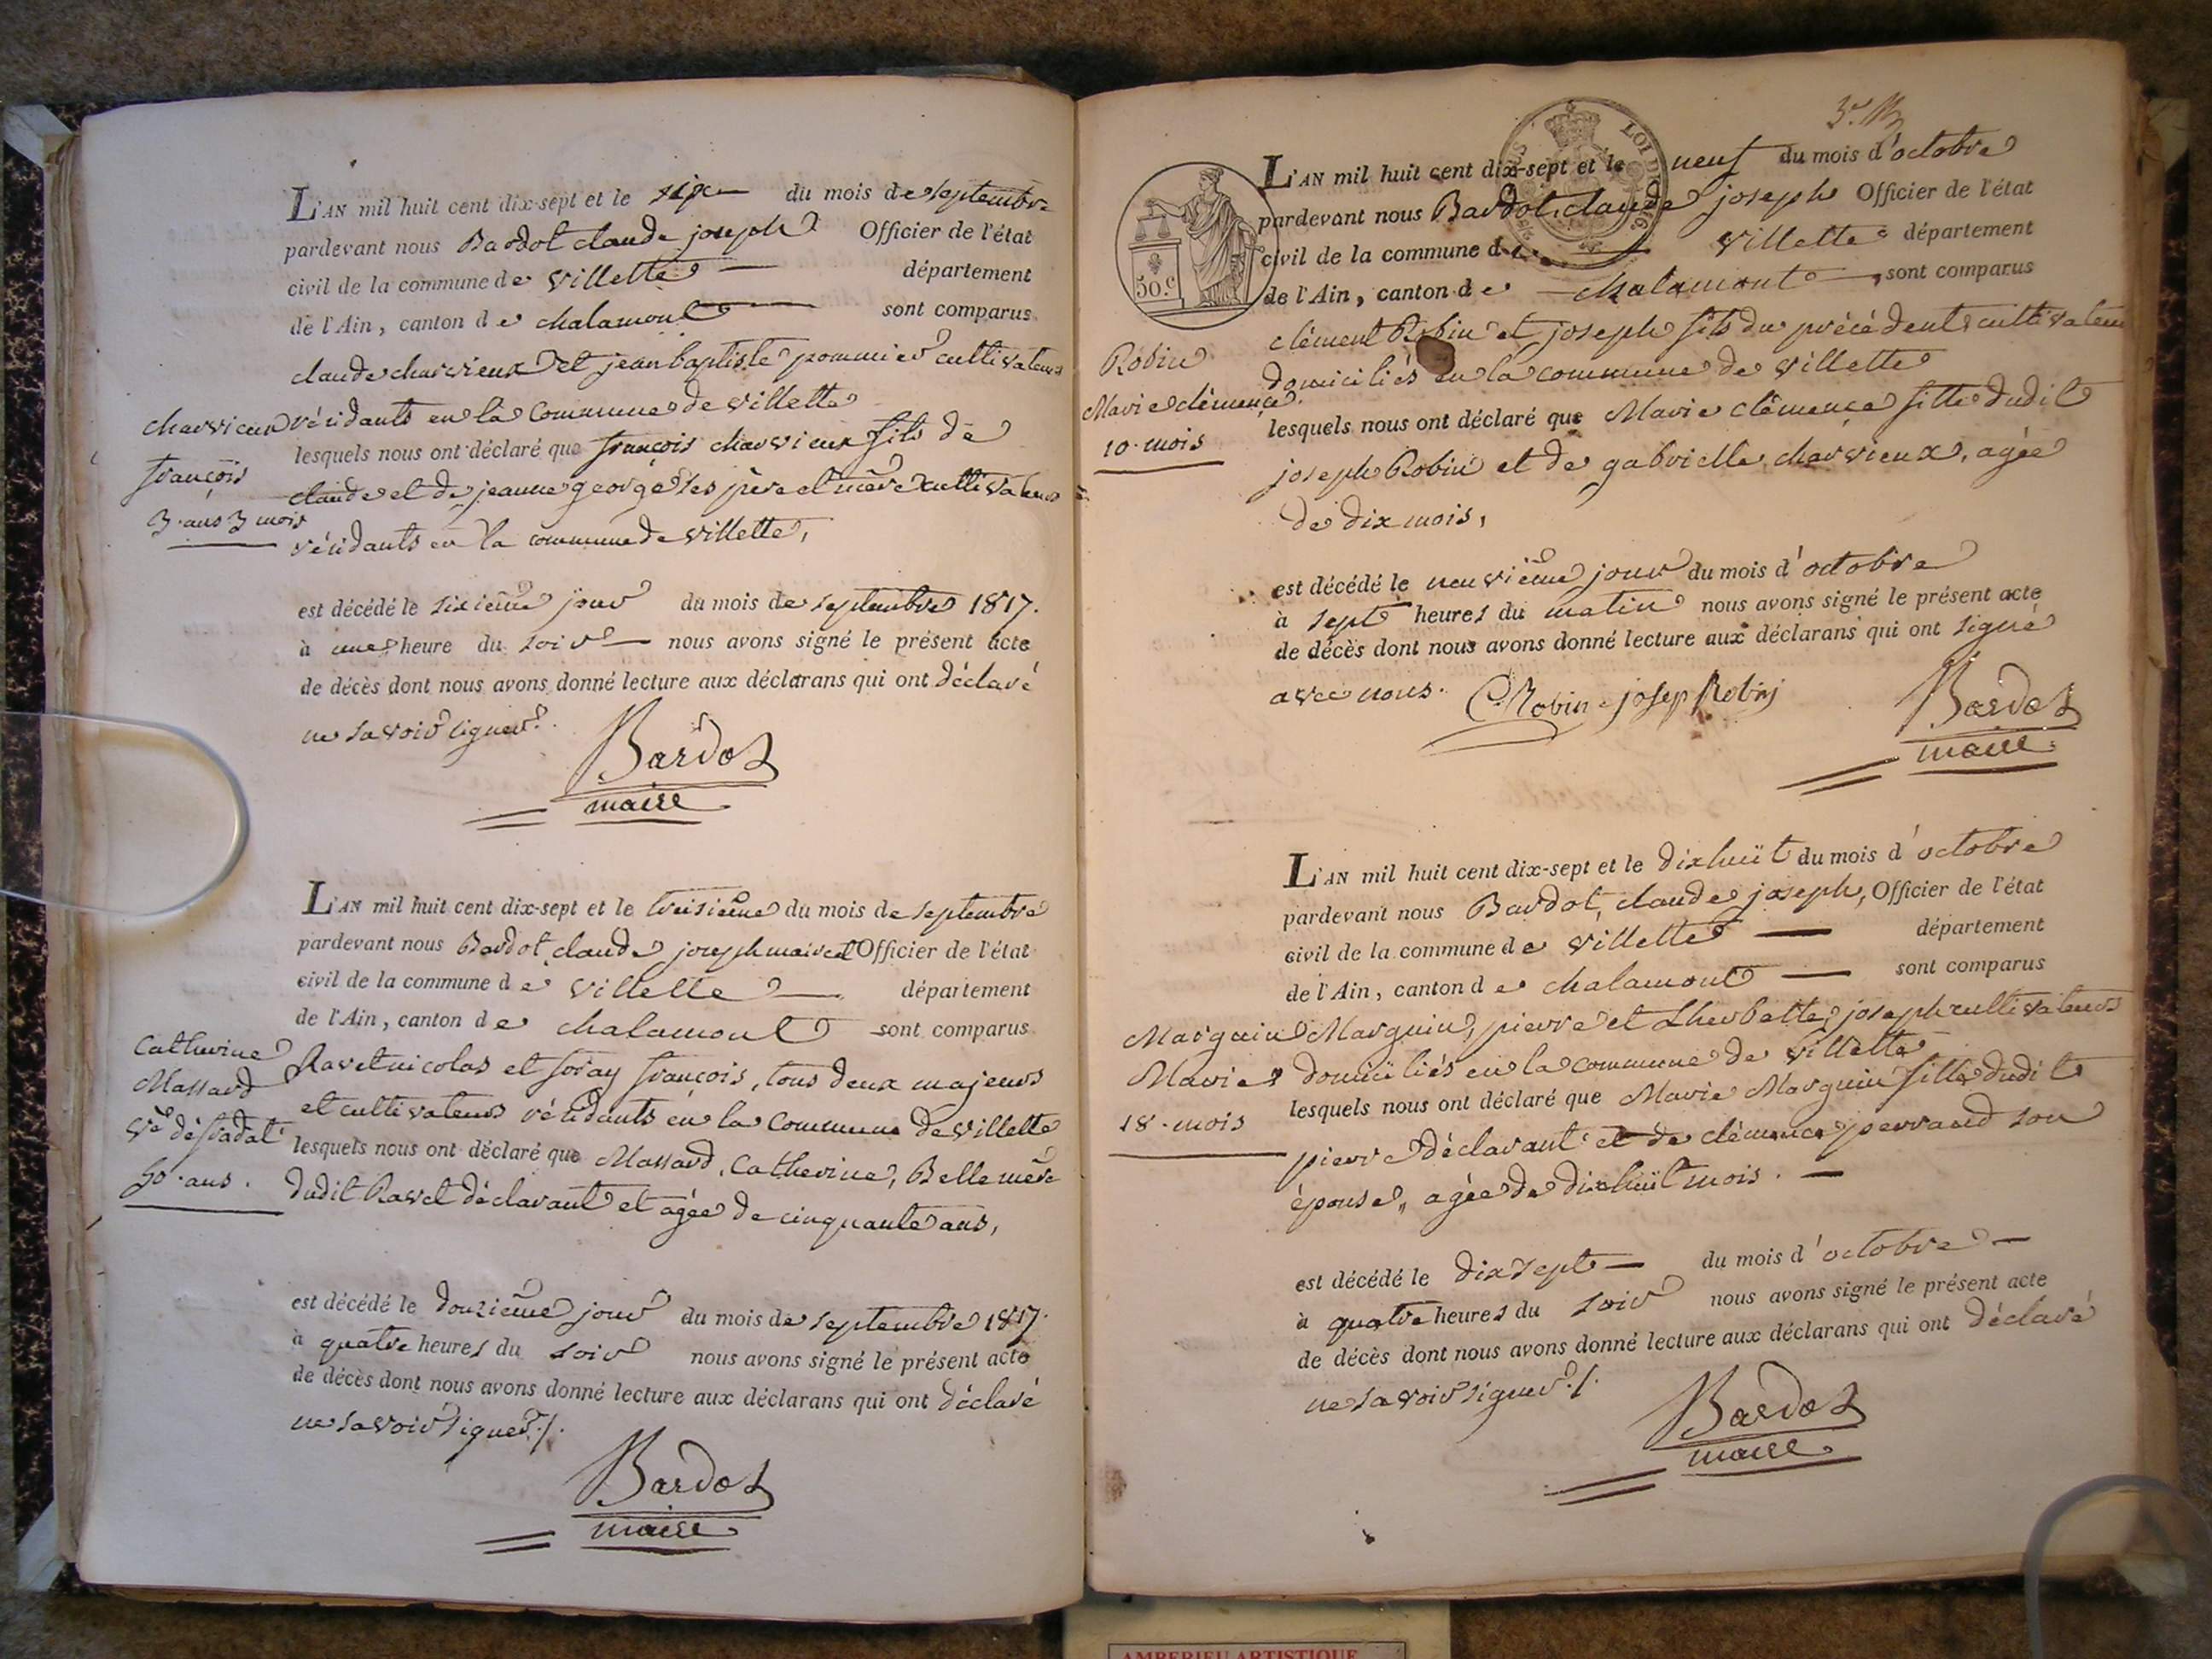 L'AN mil huit cent dix-sept et le six du mois de septembre
pardevant nous Bardot claude joseph Officier de l'état
civil de la commune de villette département
de l'Ain, canton de chalamont sont comparus
claude charvieux et jean baptiste pommier cultivateurs
résidants en la commune de villette
lesquels nous ont déclaré que françois charvieux fils de
claude et de jeanne george ses père et mère cultivateurs
résidants en la commune de villette,
est décédé le sixième jour du mois de septembre 1817.
à une heure du soir nous avons signé le présent acte
de décès dont nous avons donné lecture aux déclarans qui ont déclaré
ne savoir signer.
Bardot
maire
charvieux
françois
3 ans 3 mois
L'AN mil huit cent dix-sept et le treisième du mois de septembre
pardevant nous Bardot claude joseph maire et Officier de l'état
civil de la commune de villette département
de l'Ain, canton de chalamont sont comparus
Ravet nicolas et foray françois, tous deux majeurs
et cultivateurs résidants en la commune de villette
lesquels nous ont déclaré que Massard, Catherine, Belle mère
dudit Ravet déclarant et agée de cinquante ans,
est décédé le douzième jour du mois de septembre 1817.
à quatre heures du soir nous avons signé le présent acte
de décès dont nous avons donné lecture aux déclarans qui ont déclaré
ne savoir signer ./.
Bardot
maire
Catherine
Massard
50 ans.
LOI DE 1816.
50.c
L'AN mil huit cent dix-sept et le neuf du mois d'octobre
pardevant nous Bardot claude joseph Officier de l'état
civil de la commune de villette département
de l'Ain, canton de chalamont, sont comparus
clément Robin et joseph fils du précédent cultivateurs
domiciliés en la commune de villette
lesquels nous ont déclaré que Marie clémence fille dudit
joseph Robin et de gabrielle charvieux, agée
de dix mois,
est décédé le neuvième jour du mois d'octobre
à sept heures du matin nous avons signé le présent acte
de décès dont nous avons donné lecture aux déclarans qui ont signé
avec nous. C Robin josep Robin
Bardot
maire
Robin
Marie clémence.
10 mois
L'AN mil huit cent dix-sept et le dixhuit du mois d'octobre
pardevant nous Bardot, claude joseph, Officier de l'état
civil de la commune de villette département
de l'Ain, canton de chalamont sont comparus
Marguin, pierre et Lherbette joseph cultivateurs
domiciliés en la commune de villette
lesquels nous ont déclaré que Marie Marguin fille dudit
pierre déclarant et de clémence perraud son
épouse, agée de dixhuit mois.
est décédé le dix sept du mois d'octobre
à quatre heures du soir nous avons signé le présent acte
de décès dont nous avons donné lecture aux déclarans qui ont déclaré
ne savoir signer ./.
Bardot
maire
Marguin
Marie
18 mois
AMBERIEU ARTISTIQUE